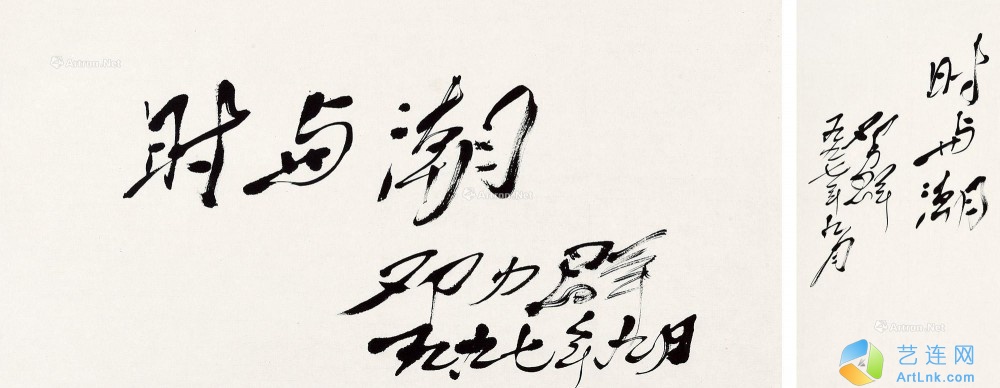 Artron.Net
时与潮
Artron.Net
邓力群
一九九七年九月
时与潮
邓力群
一九九七年九月
Artron.Net
艺连网
ArtLnk.com